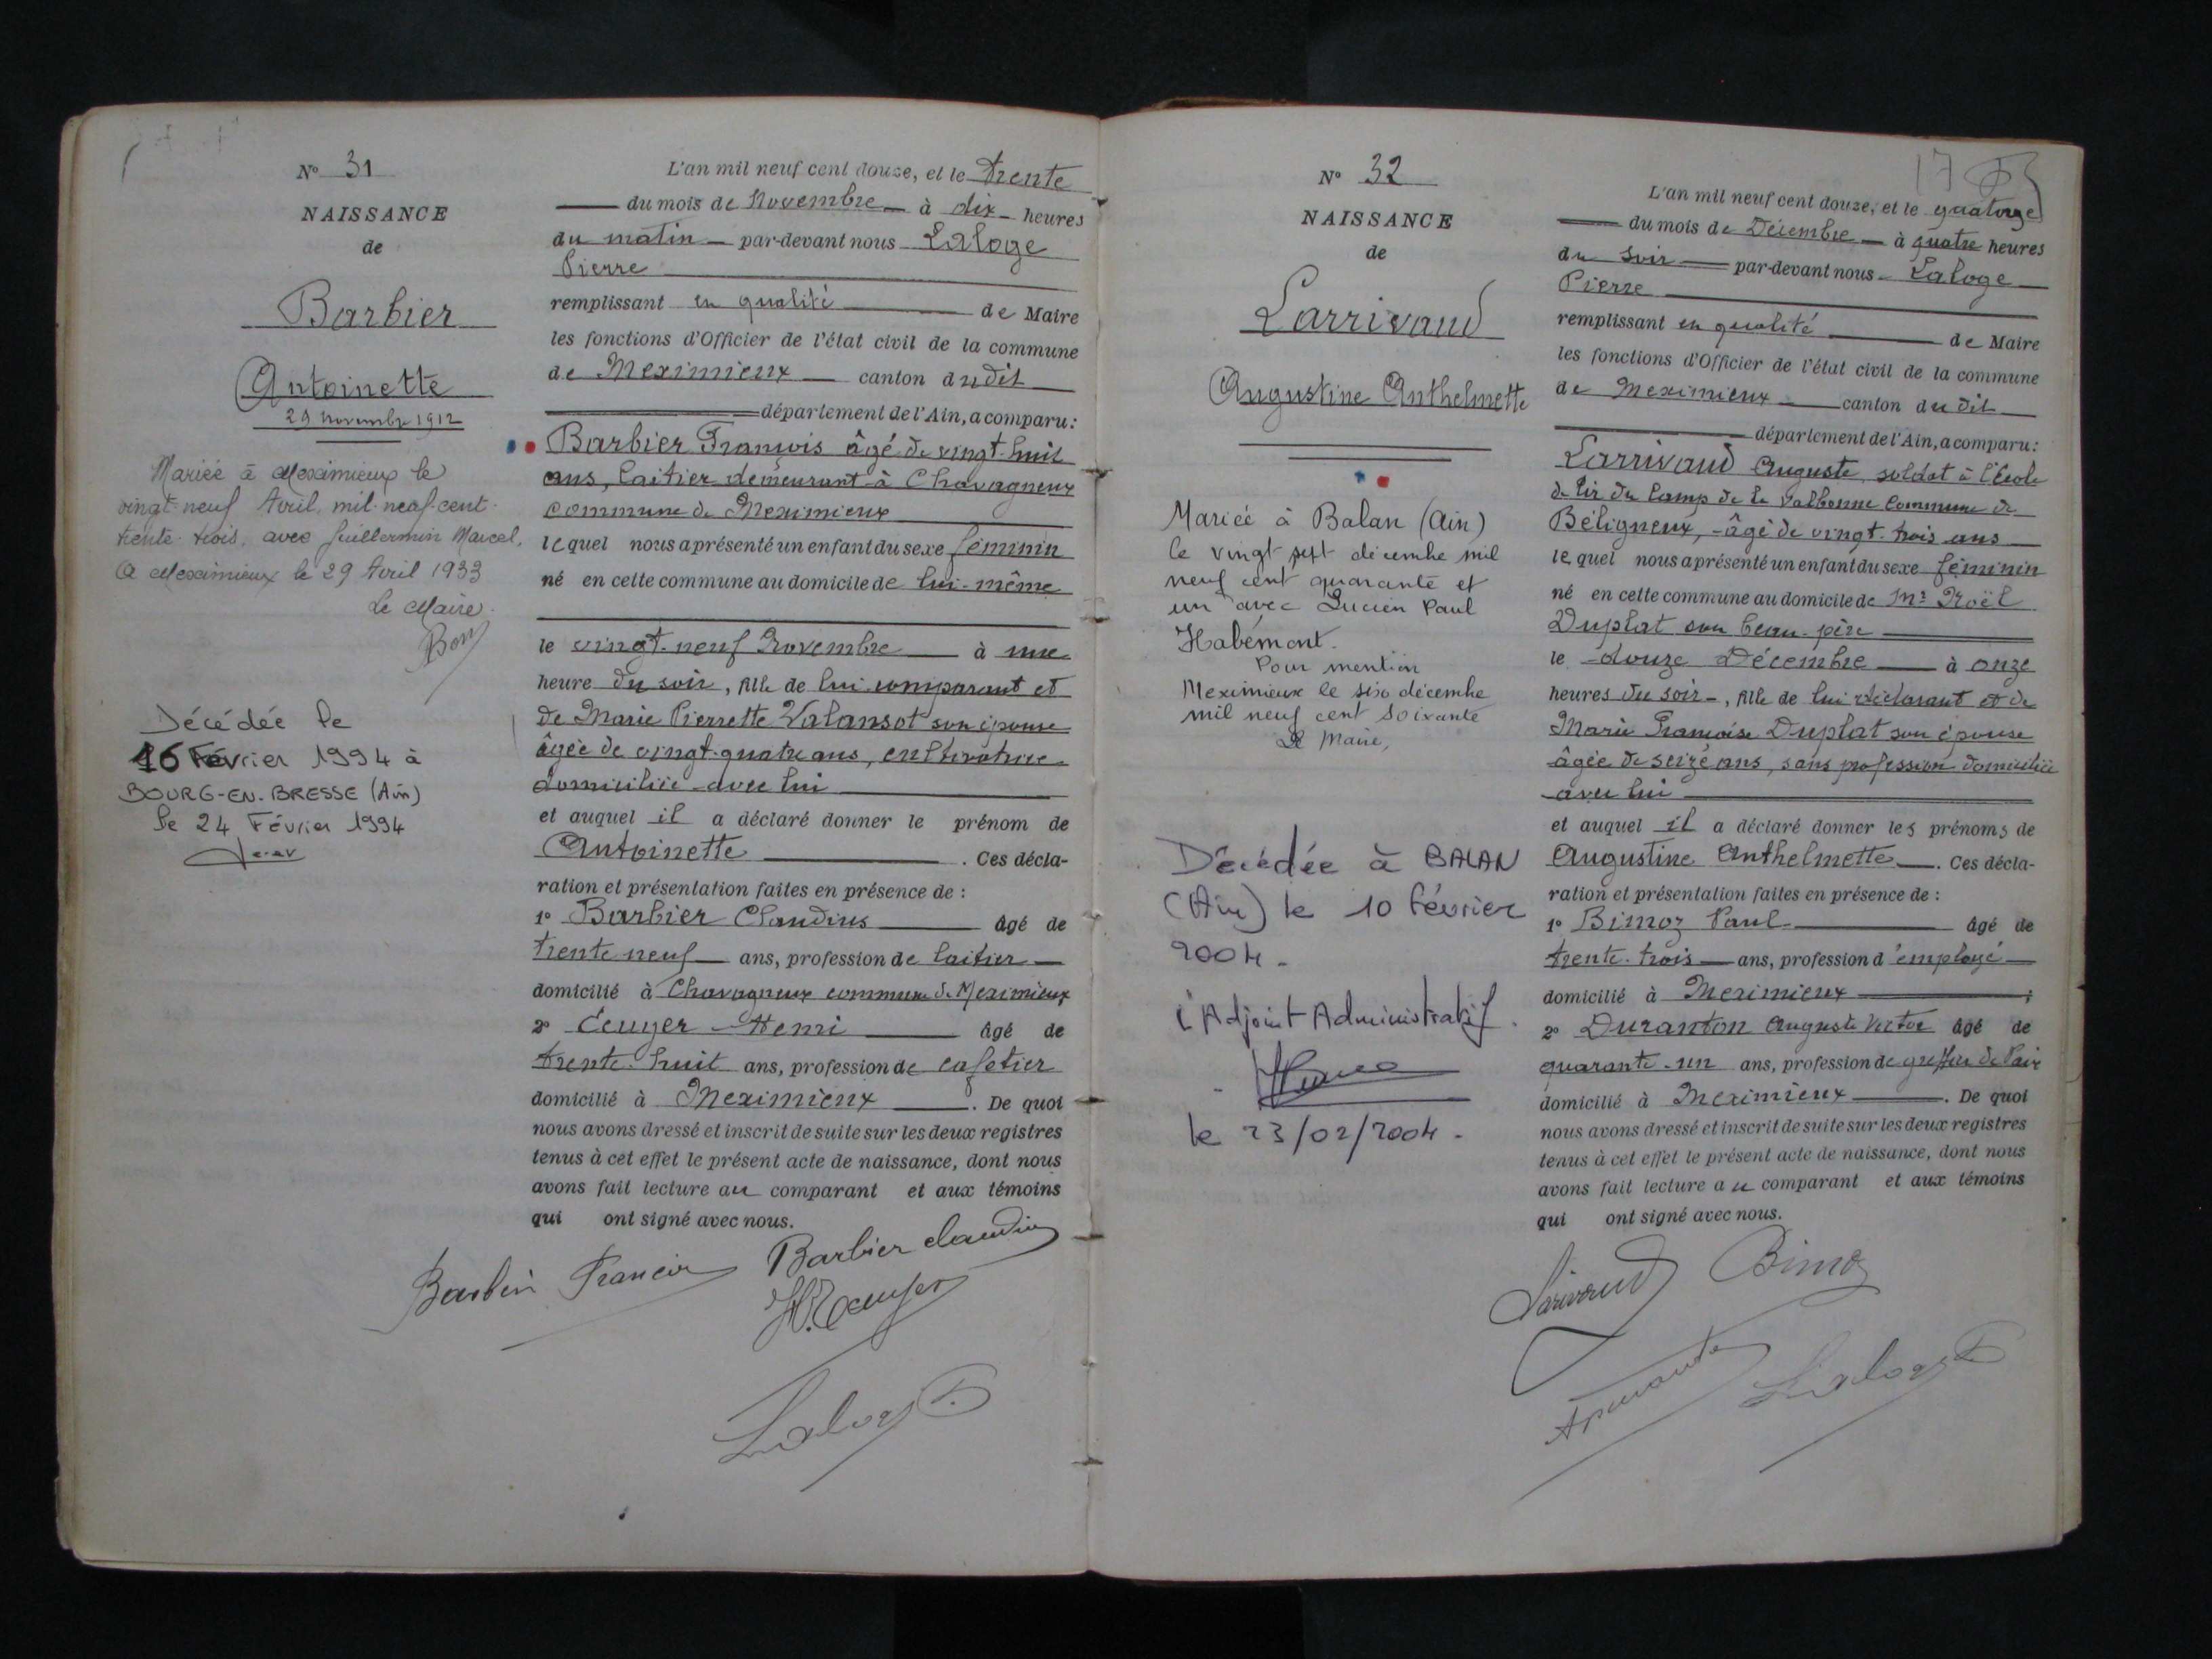 N° 31
NAISSANCE
de
Barbier
Antoinette
29 novembre 1912
Mariée à Meximieux le
vingt-neuf Avril, mil-neuf-cent-
trente-trois, avec Guillermin Marcel.
A Meximieux le 29 Avril 1933
Le Maire.
Décédée le
16 Février 1994 à
BOURG-EN-BRESSE (Ain)
le 24 Février 1994
L'an mil neuf cent douze, et le trente
du mois de Novembre à dix heures
du matin par-devant nous Laloge
Pierre
remplissant en qualité de Maire
les fonctions d'Officier de l'état civil de la commune
de Meximieux canton dudit
département de l'Ain, a comparu:
Barbier François âgé de vingt-huit
ans, laitier demeurant à Chavagneux
commune de Meximieux
lequel nous a présenté un enfant du sexe féminin
né en cette commune au domicile de lui-même
le vingt-neuf Novembre à une
heure du soir, fille de lui comparant et
de Marie Pierrette Valansot son épouse
âgée de vingt-quatre ans, cultivatrice
domiciliée avec lui
et auquel il a déclaré donner le prénom de
Antoinette. Ces décla-
ration et présentation faites en présence de :
1° Barbier Claudius âgé de
trente neuf ans, profession de laitier
domicilié à Chavagneux commune de Meximieux
2° Écuyer Henri âgé de
trente-huit ans, profession de cafetier
domicilié à Meximieux. De quoi
nous avons dressé et inscrit de suite sur les deux registres
tenus à cet effet le présent acte de naissance, dont nous
avons fait lecture au comparant et aux témoins
qui ont signé avec nous.
Barbier Claudius
N° 32
NAISSANCE
de
Larrivaud
Augustine Anthelmette
Mariée à Balan (Ain)
le vingt sept décembre mil
neuf cent quarante et
un avec Lucien Paul
Habémont.
Pour mention
Meximieux le six décembre
mil neuf cent soixante
Le Maire,
Décédée à BALAN
(Ain) le 10 février
2004.
L'Adjoint Administratif.
le 23/02/2004.
17
L'an mil neuf cent douze, et le quatorze
du mois de Décembre à quatre heures
du soir par-devant nous Laloge
Pierre
remplissant en qualité de Maire
les fonctions d'Officier de l'état civil de la commune
de Meximieux canton du dit
département de l'Ain, a comparu:
Larrivaud Auguste soldat à l'École
de tir du Camp de la Valbonne Commune de
Béligneux, âgé de vingt-trois ans
lequel nous a présenté un enfant du sexe féminin
né en cette commune au domicile de Mr Noël
Duplat son beau-père
le douze Décembre à onze
heures du soir, fille de lui déclarant et de
Marie Françoise Duplat son épouse
âgée de seize ans, sans profession domiciliée
avec lui
et auquel il a déclaré donner les prénoms de
Augustine Anthelmette. Ces décla-
ration et présentation faites en présence de :
1° Bimoz Paul âgé de
trente-trois ans, profession d'employé
domicilié à Meximieux;
2° Duranton Auguste Victor âgé de
quarante-un ans, profession de greffier de Paix
domicilié à Meximieux. De quoi
nous avons dressé et inscrit de suite sur les deux registres
tenus à cet effet le présent acte de naissance, dont nous
avons fait lecture au comparant et aux témoins
qui ont signé avec nous.
Bimoz